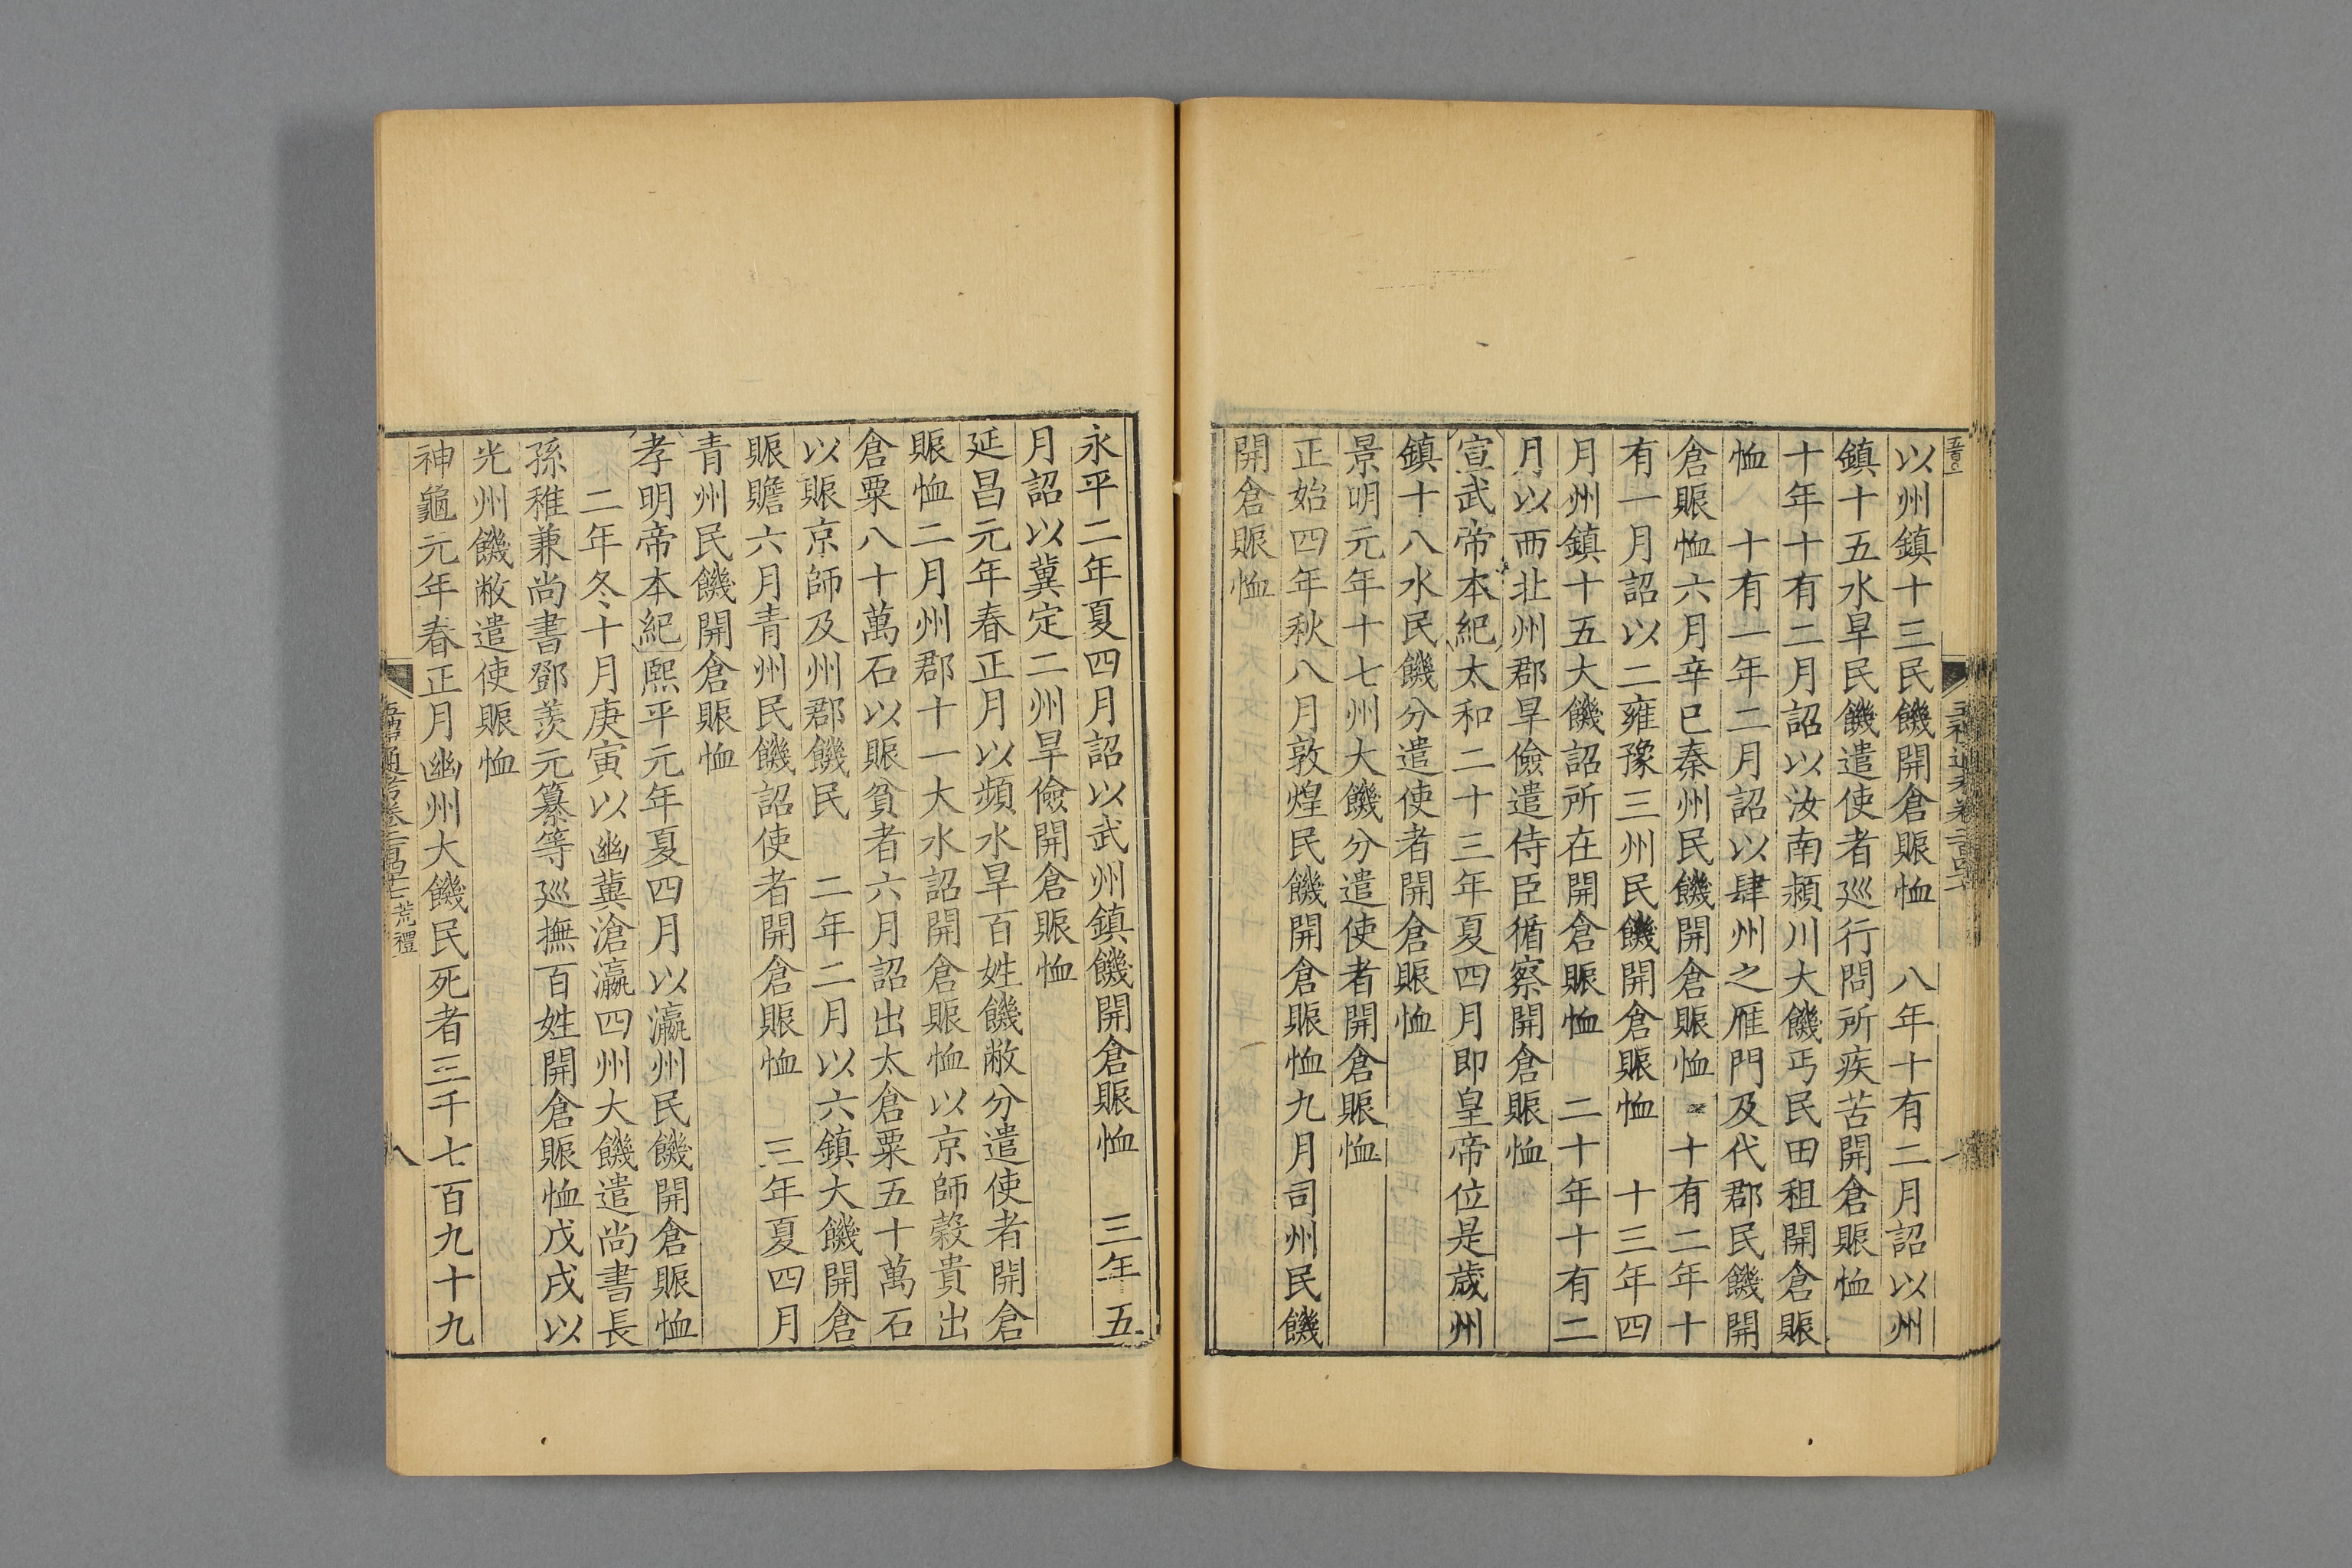 以州鎮十三民饑開倉賑恤　八年十有二月詔以州
鎮十五水旱民饑遣使者巡行問所疾苦開倉賑恤
十年十有二月詔以汝南潁川大饑丐民田租開倉賑
恤　十有一年二月詔以肆州之雁門及代郡民饑開
倉賑恤六月辛巳秦州民饑開倉賑恤　十有二年十
有一月詔以二雍豫三州民饑開倉賑恤　十三年四
月州鎮十五大饑詔所在開倉賑恤　二十年十有二
月以西北州郡旱儉遣侍臣循察開倉賑恤
宣武帝本紀太和二十三年夏四月即皇帝位是歲州
鎮十八水民饑分遣使者開倉賑恤
景明元年十七州大饑分遣使者開倉賑恤
正始四年秋八月敦煌民饑開倉賑恤九月司州民饑
開倉賑恤
永平二年夏四月詔以武州鎮饑開倉賑恤　三年五
月詔以冀定二州旱儉開倉賑恤
延昌元年春正月以頻水旱百姓饑敝分遣使者開倉
賑恤二月州郡十一大水詔開倉賑恤以京師穀貴出
倉粟八十萬石以賑貧者六月詔出太倉粟五十萬石
以賑京師及州郡饑民　二年二月以六鎮大饑開倉
賑贍六月青州民饑詔使者開倉賑恤　三年夏四月
青州民饑開倉賑恤
孝明帝本紀熙平元年夏四月以瀛州民饑開倉賑恤
二年冬十月庚寅以幽冀滄瀛四州大饑遣尚書長
孫稚兼尚書鄧羨元纂等巡撫百姓開倉賑恤戊戌以
光州饑敝遣使賑恤
神龜元年春正月幽州大饑民死者三千七百九十九
五禮通考卷二百四十七　荒禮
八